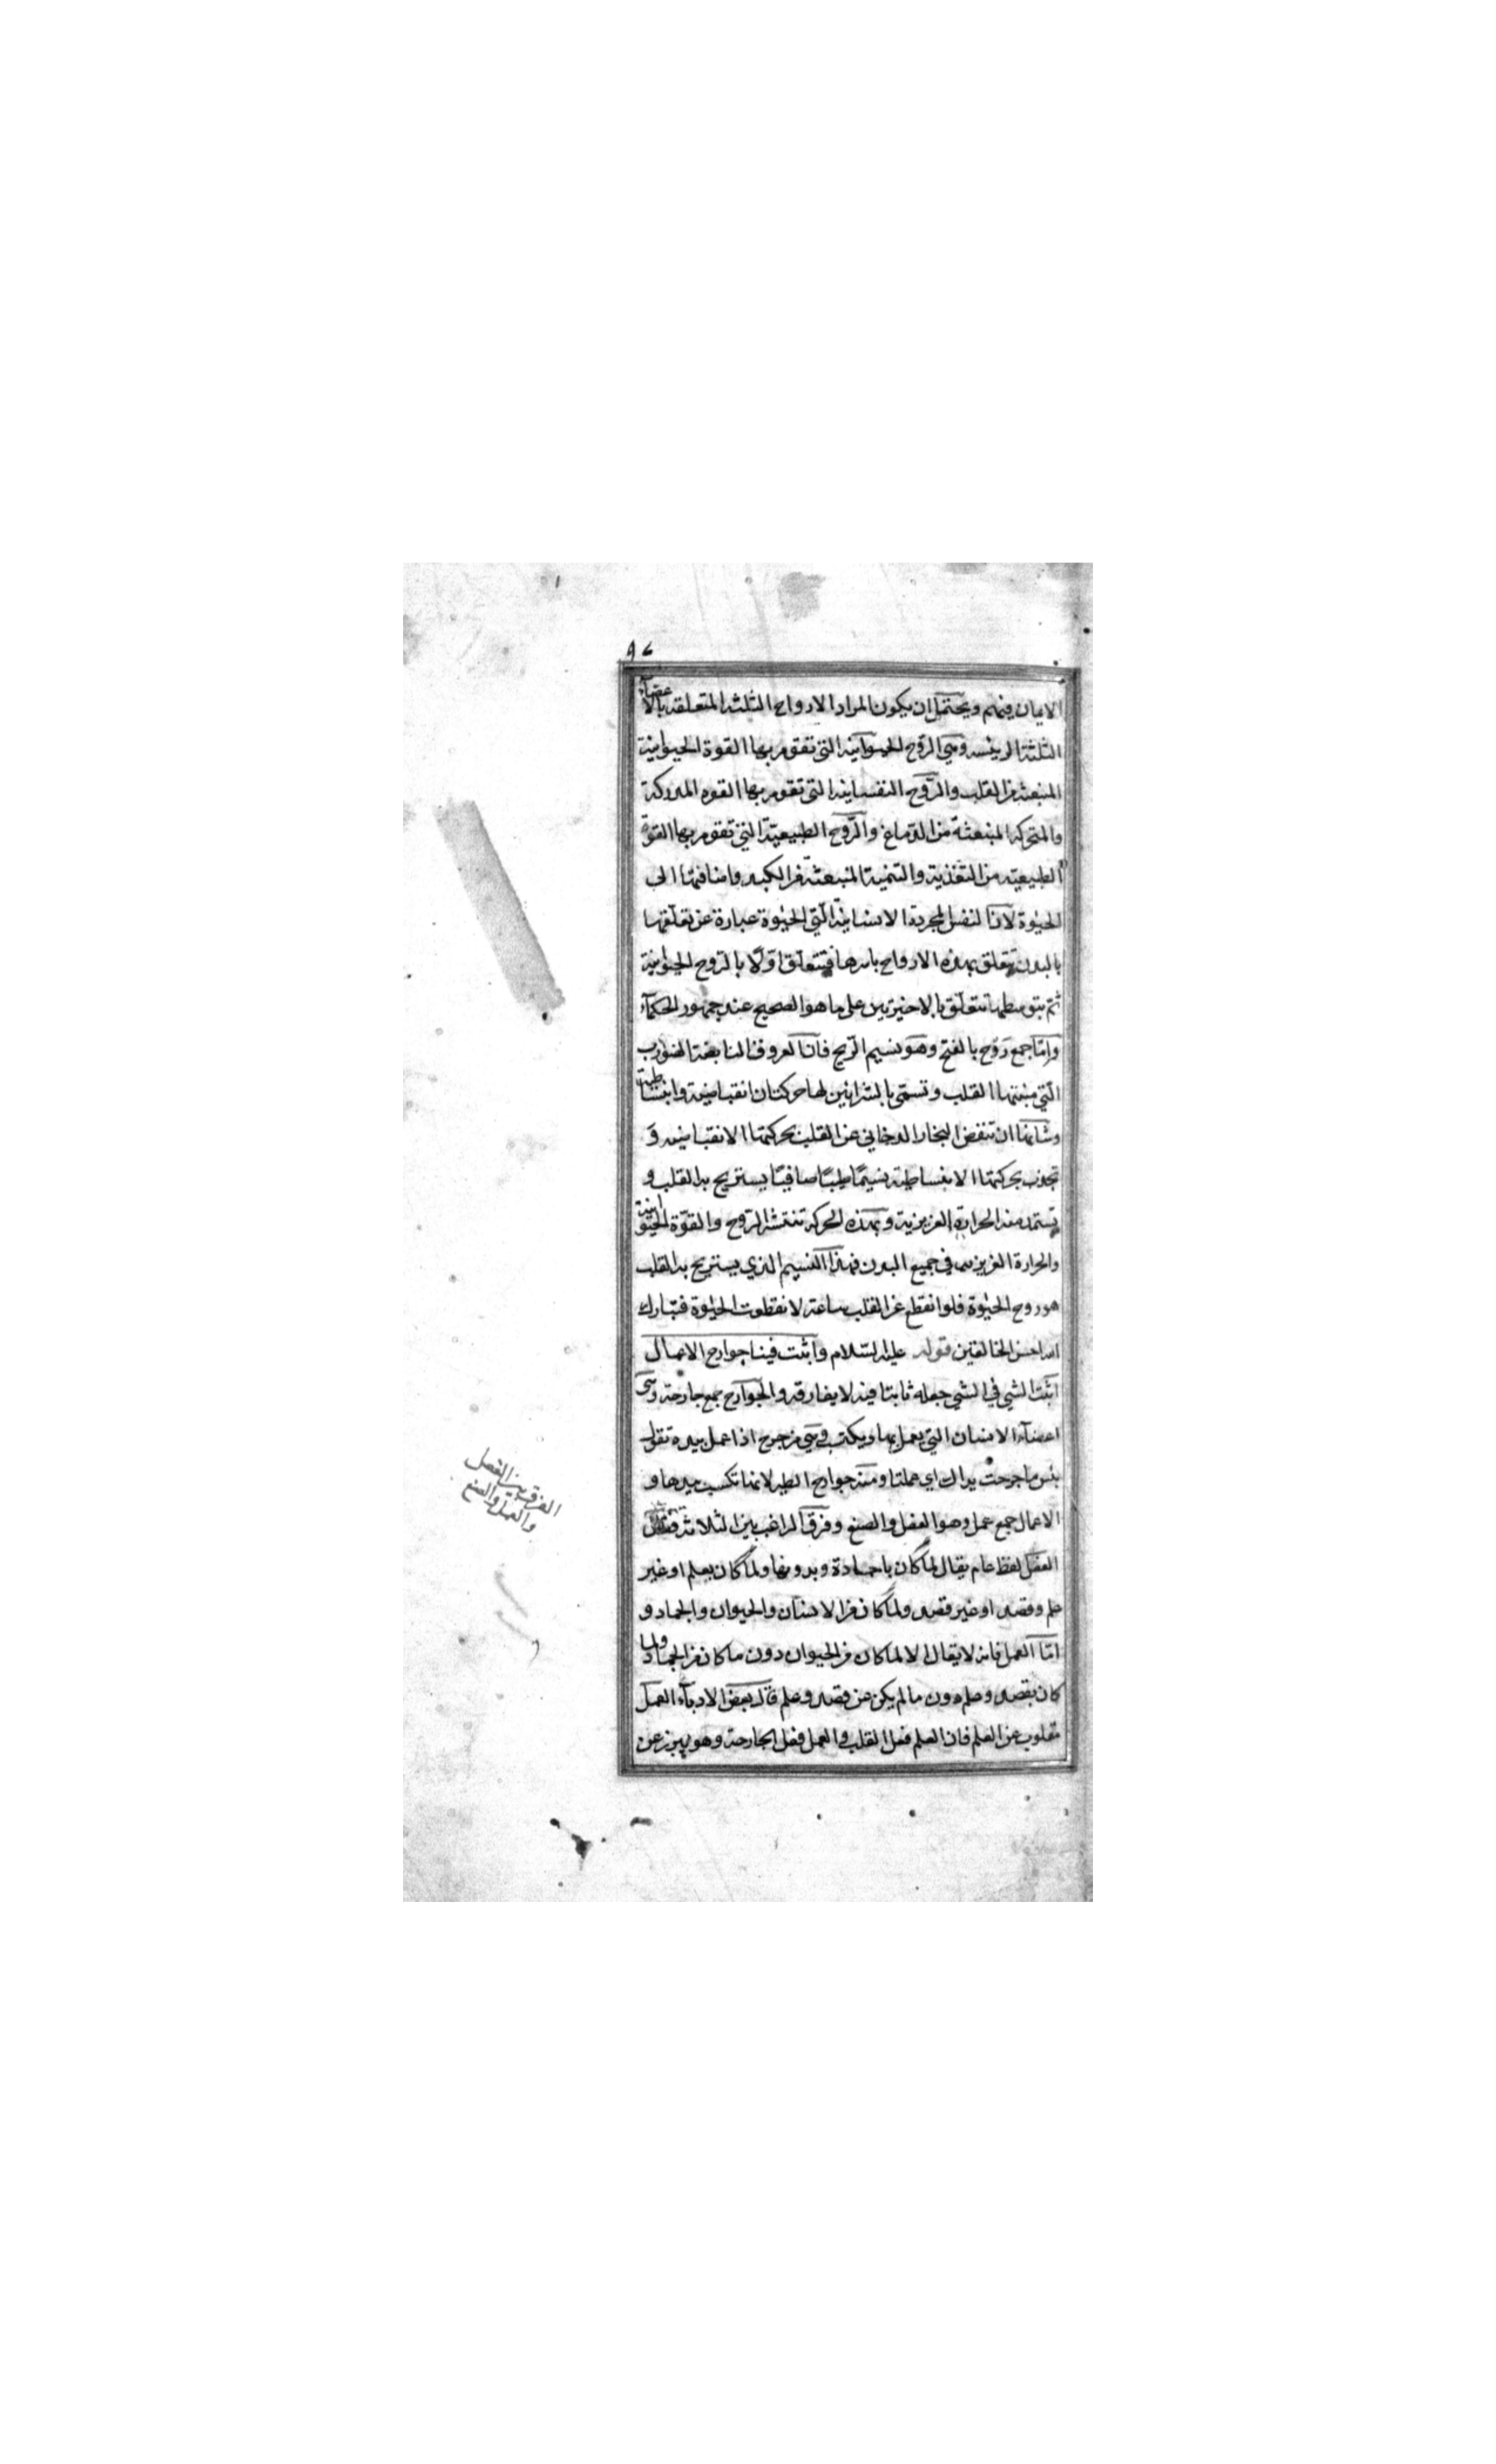 ٩٤
الايمان فيهم ويحتمل ان يكون المراد الارواح الثلثة المتعلقة بالاعضآء
الثلثة الرئيسه وهي الروح الحيوانية التي تقوم بها القوة الحيوانية
المنبعثة من القلب والروح النفسانية التي تقوم بها القوه المدركة
والمتحركة المنبعثة من الدماغ والروح الطبيعيّة التي تقوم بها القوة
الطبيعية من التغذية والتنمية المنبعثة من الكبد واضافتها الى
الحيٰوة لان النفس المجردة الانسانية التي الحيٰوة عبارة عن تعلقها
بالبدن تتعلق بهذه الارواح باسرها فتتعلق اوّلا بالروح الحيوانية
ثمّ بتوسطها تتعلّق بالاخيرتين على ما هو الصحيح عند جمهور الحكمآء
وامّا جمع رَوح بالفتح وهو نسيم الرّيح فانّ العروق النابضة الضوارب
الّتي منبتها القلب وتسمّى بالشرايين لها حركتان انقباضية وانبساطية
وشانها ان تنفض البخار الدخاني عن القلب بحركتها الانقباضية وَ
تجذب بحركتها الانبساطية نسيمًا طيبًا صافيًا يستريح به القلب و
تستمد منه الحرارة الغريزية وبهذه الحركة تنتشر الرّوح والقوّة الحيوانية
والحرارة الغريزيه في جميع البدن فهذا النسيم الذي يستريح به القلب
هو روح الحيٰوة فلو انقطع عن القلب ساعة لانقطعت الحيٰوة فتبارك
الله احسن الخالقين قوله عليه السّلام واثبت فينا جوارح الاعمال
اثبت الشي في الشي جعله ثابتا فيه لا يفارقه والجوارح جمع جارحة وهى
اعضآء الانسان التي يعمل بها ويكتسب وهي من جرح اذا عمل بيده تقول
بئس ما جرحت يداك اي عملتا ومنه جوارح الطير لانها تكسب بيدها و
الاعمال جمع عمل وهو الفعل والصنع وفرق الراغب بين الثلاثة فقال
الفعل لفظ عام يقال لما كان باجادة وبدونها ولما كان بعلم او غير
علم وقصد او غير قصد ولما كان من الانسان والحيوان والجماد و
امّا العمل فانه لا يقال الا لما كان من الحيوان دون ما كان من الجماد ولما
كان بقصد وعلم دون ما لم يكن عن قصد وعلم قال بعض الادبآء العمل
مقلوب عن العلم فان العلم فعل القلب والعمل فعل الجارحة وهو يبرز عن
الفرق بين الفعل
والعمل والصنع